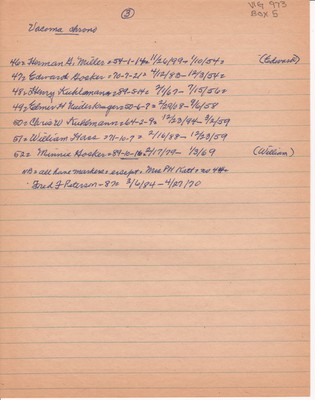 ③
VIG 973
BOX 5
Vacoma chrono
46= Herman G. Miller = 54-1-14= 11/26/99 - 1/10/54=
(Edward)
47= Edward Hosker = 70-7-21= 4/12/83 - 12/3/54=
48= Harry Kuhlmann = 89-5-14= 2/1/67 - 7/15/56=
49= Elmer H 50-6-8= 2/29/08 - 9/6/58
50= Chris W Kuhlmann = 64-2-9= 12/23/94 - 3/2/59
51= William Hase = 71-10-7= 2/16/88 - 12/23/59
52= Minnie Hosker = 89-10-16= 2/17/79 - 1/3/69 (William)
NB= all have markers = except = Mrs PH Katt = no 44=
Fred F Peterson - 87= 3/6/84 - 4/27/70